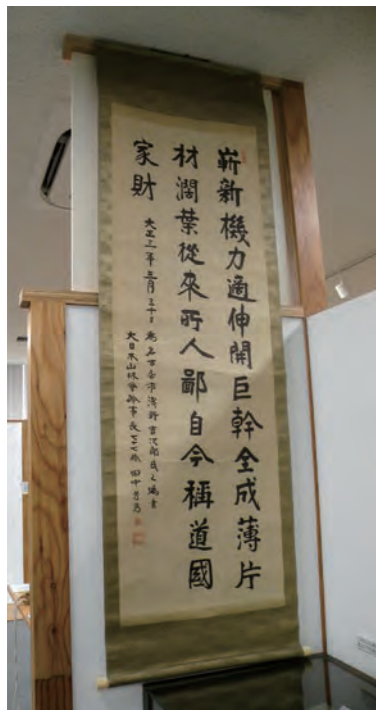 嶄新機力適伸開巨幹全成薄片
材濶葉從來所人鄙自今稱道國
家財
大正三年五月三十日
為名古屋市浅野吉次郎氏之嘱書
大日本山林會幹事長 田中芳男